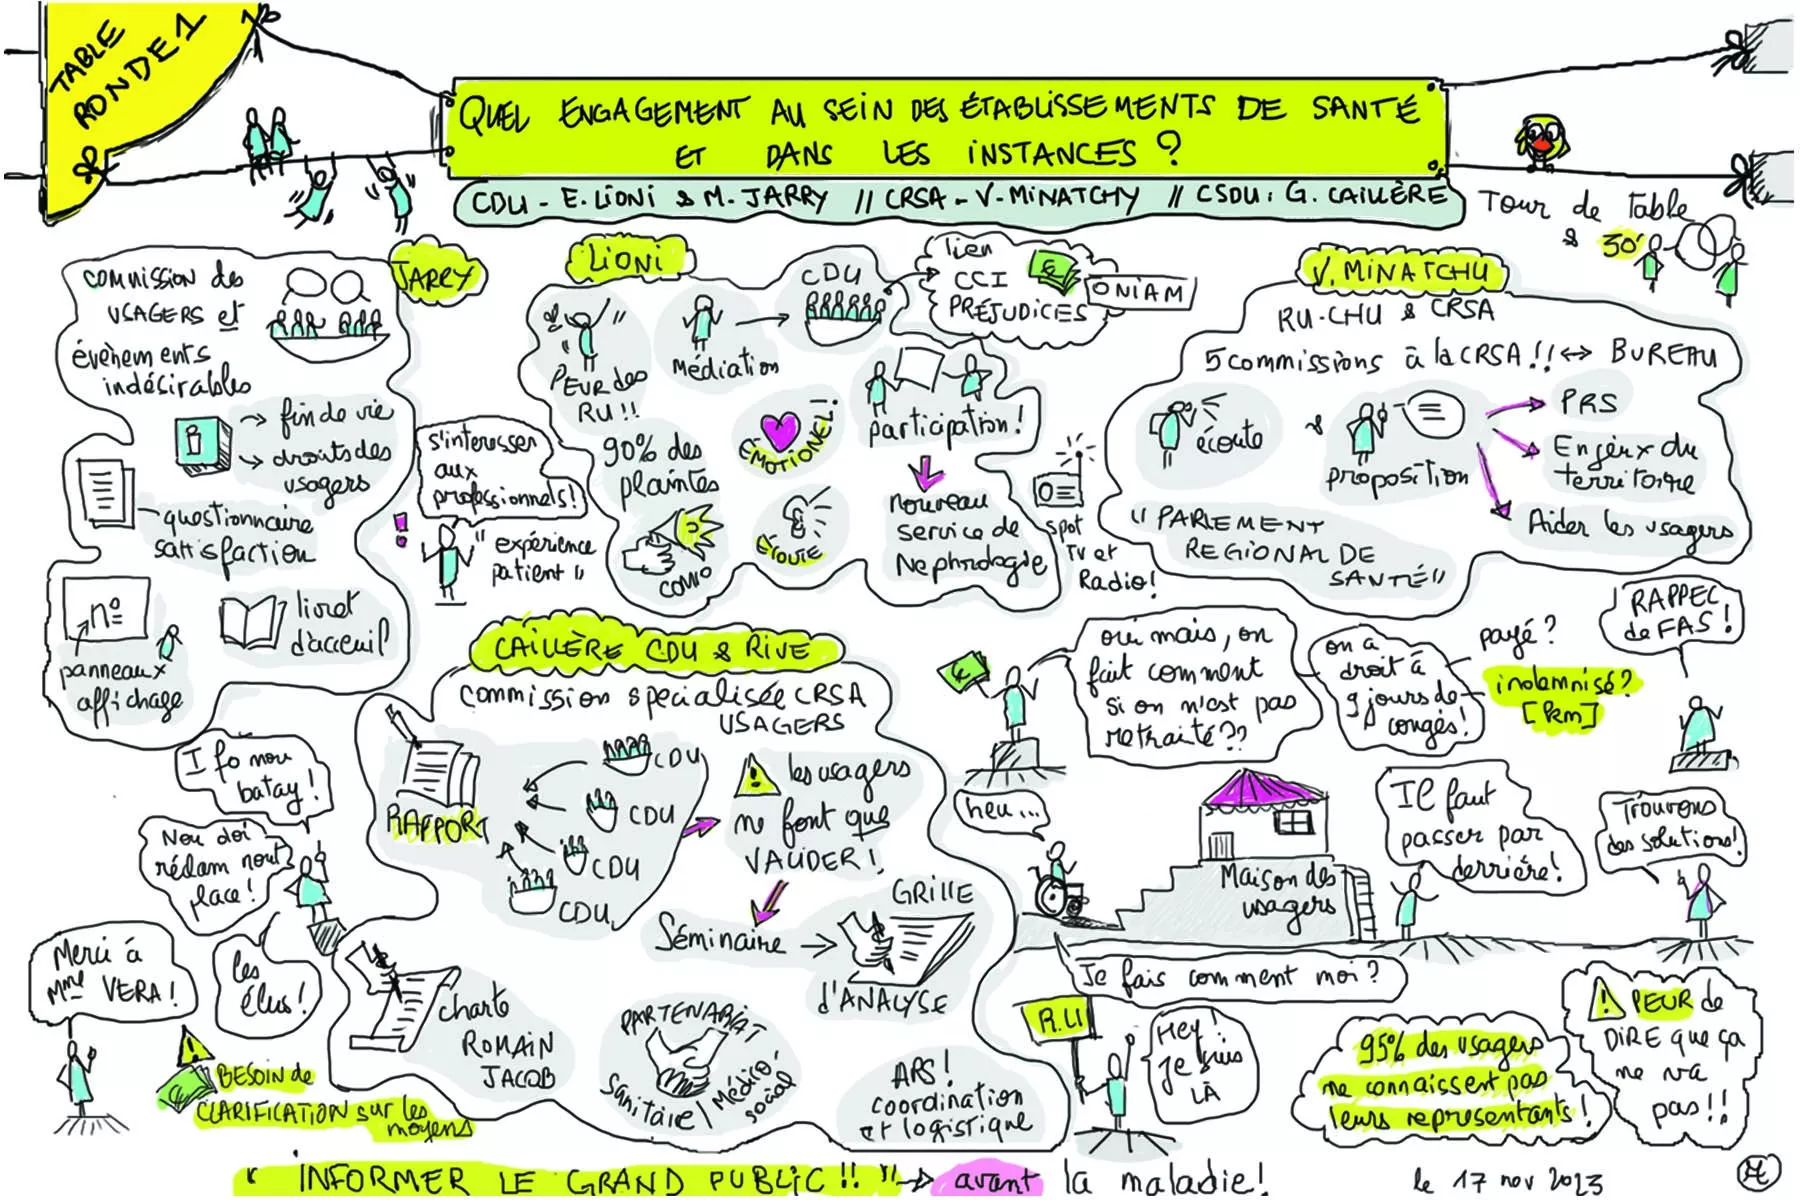 TABLE
RONDE 1
QUEL ENGAGEMENT AU SEIN DES ÉTABLISSEMENTS DE SANTÉ
ET DANS LES INSTANCES ?
CDU - E. LIONI & M. JARRY // CRSA - V. MINATCHY // CSDU : G. CAILLÈRE
TOUR de TABLE
& 30'
JARRY
COMMISSION des
USAGERS et
évènements
indésirables
i
fin de vie
droits des
usagers
questionnaire
satisfaction
n°
panneaux
affichage
livret
d'acceuil
s'interesser
aux
professionnels !
!
"expérience
patient"
LIONI
PEUR des
RU !!
Médiation
CDU
lien
CCI
PRÉJUDICES
€
ONIAM
90% des
plaintes
COMO
ÉMOTIONEL !
ÉCOUTE
participation !
nouveau
service de
Néphrologie
spot
TV et
Radio !
V. MINATCHU
RU-CHU & CRSA
5 commissions à la CRSA !! ↔ BUREAU
écoute
&
proposition
PRS
Enjeux du
territoire
Aider les usagers
"PARLEMENT
REGIONAL DE
SANTÉ"
CAILLÈRE CDU & RIVE
commission spécialisée CRSA
USAGERS
RAPPORT
CDU
CDU
CDU
CDU
! les usagers
ne font que
VALIDER !
Séminaire
GRILLE
d'ANALYSE
charte
ROMAIN
JACOB
PARTENARIAT
Sanitaire / Médico
social
ARS !
coordination
et logistique
I fo nou
batay !
Nou doi
réclam nout
place !
les
élus !
Merci à
Mme VERA !
!
€
BESOIN de
CLARIFICATION sur les
moyens
€
oui mais, on
fait comment
si on n'est pas
retraité ??
on a
droit à
9 jours de
congés !
payé ?
indemnisé ?
[km]
RAPPEL
de FAS !
heu...
Maison des
usagers
Il faut
passer par
derrière !
Trouvons
des solutions !
Je fais comment moi ?
R.U
Hey !
je suis
LÀ
95% des usagers
ne connaissent pas
leurs représentants !
! PEUR de
DIRE que ça
ne va
pas !!
"INFORMER LE GRAND PUBLIC !!" → avant la maladie !
le 17 nov 2023